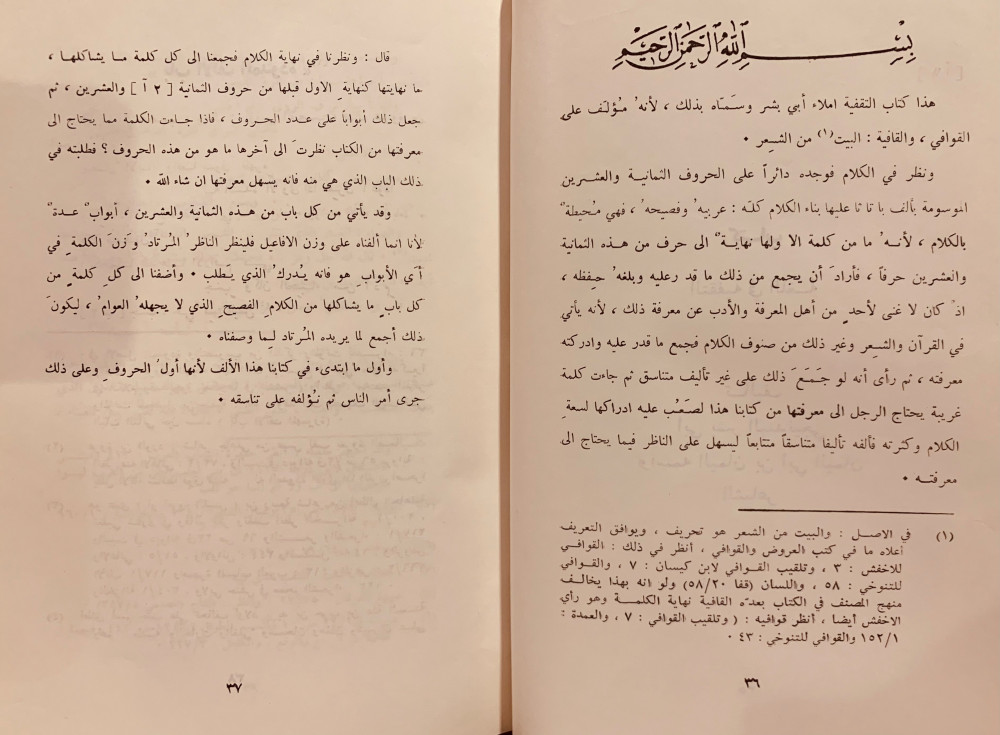 بسم الله الرحمن الرحيم
هذا كتاب التقفية املاء أبي بشر وسَمّاه بذلك ، لأنهُ مُؤلَف على
القوافي ، والقافية : البيت(١) من الشعر ٠
ونظر في الكلام فوجده دائراً على الحروف الثمانية والعشرين
الموسومة بألف با تا ثا عليها بناء الكلام كله : عربيهُ وفصيحهُ ، فهي مُحيطةٌ
بالكلام ، لأنهُ ما من كلمة الا ولها نهايةٌ الى حرف من هذه الثمانية
والعشرين حرفاً ، فأرادَ أن يجمع من ذلك ما قد رعليه وبلغهُ حِفظه ،
اذْ كان لا غنى لأحدٍ من أهل المعرفة والأدب عن معرفة ذلك ، لأنه يأتي
في القرآن والشعر وغير ذلك من صنوف الكلام فجمع ما قدر عليه وادركته
معرفته ، ثم رأى أنه لو جَمَعَ ذلك على غير تأليف متناسق ثم جاءت كلمة
غريبة يحتاج الرجل الى معرفتها من كتابنا هذا لصَعُب عليه ادراكها لسعةِ
الكلام وكثرته فألفه تأليفا متناسقاً متتابعاً ليسهل على الناظر فيما يحتاج الى
معرفته ٠
(١) في الاصل : والبيت من الشعر هو تحريف ، ويوافق التعريف
أعلاه ما في كتب العروض والقوافي ، أنظر في ذلك : القوافي
للاخفش : ٣ ، وتلقيب القوافي لابن كيسان : ٧ ، والقوافي
للتنوخي : ٥٨ ، واللسان (قفا ٥٨/٢٠) ولو انه بهذا يخالف
منهج المصنف في الكتاب بعدّه القافية نهاية الكلمة وهو رأي
الاخفش أيضا ، أنظر قوافيه : ( وتلقيب القوافي : ٧ ، والعمدة :
١٥٢/١ والقوافي للتنوخي : ٤٣ ٠
٣٦
قال : ونظرنا في نهاية الكلام فجمعنا الى كل كلمة ما يشاكلها ،
ما نهايتها كنهايةِ الاول قبلها من حروف الثمانية [ ٢ آ ] والعشرين ، ثم
جعل ذلك أبواباً على عدد الحروف ، فاذا جاءت الكلمة مما يحتاج الى
معرفتها من الكتاب نظرتَ الى آخرها ما هو من هذه الحروف ؟ فطلبته في
ذلك الباب الذي هي منه فانه يسهل معرفتها ان شاء الله ٠
وقد يأتي من كل باب من هذه الثمانية والعشرين ، أبوابٌ عدةٌ
لأنا انما ألفناه على وزن الافاعيل فلينظر الناظرُ المُرتادُ وَزنَ الكلمةِ في
أيِ الأبوابِ هو فانه يُدركُ الذي يَطلب ٠ وأضفنا الى كلِ كلمةٍ من
كل بابٍ ما يشاكلها من الكلامِ الفصيحِ الذي لا يجهلهُ العوامُ ، ليكونَ
ذلك أجمع لما يريده المُرتاد لِما وصفناه ٠
وأول ما ابتدىء في كتابنا هذا الألف لأنها أولُ الحروفِ وعلى ذلك
جرى أمر الناس ثم نُؤلفه على تناسقه ٠
٣٧